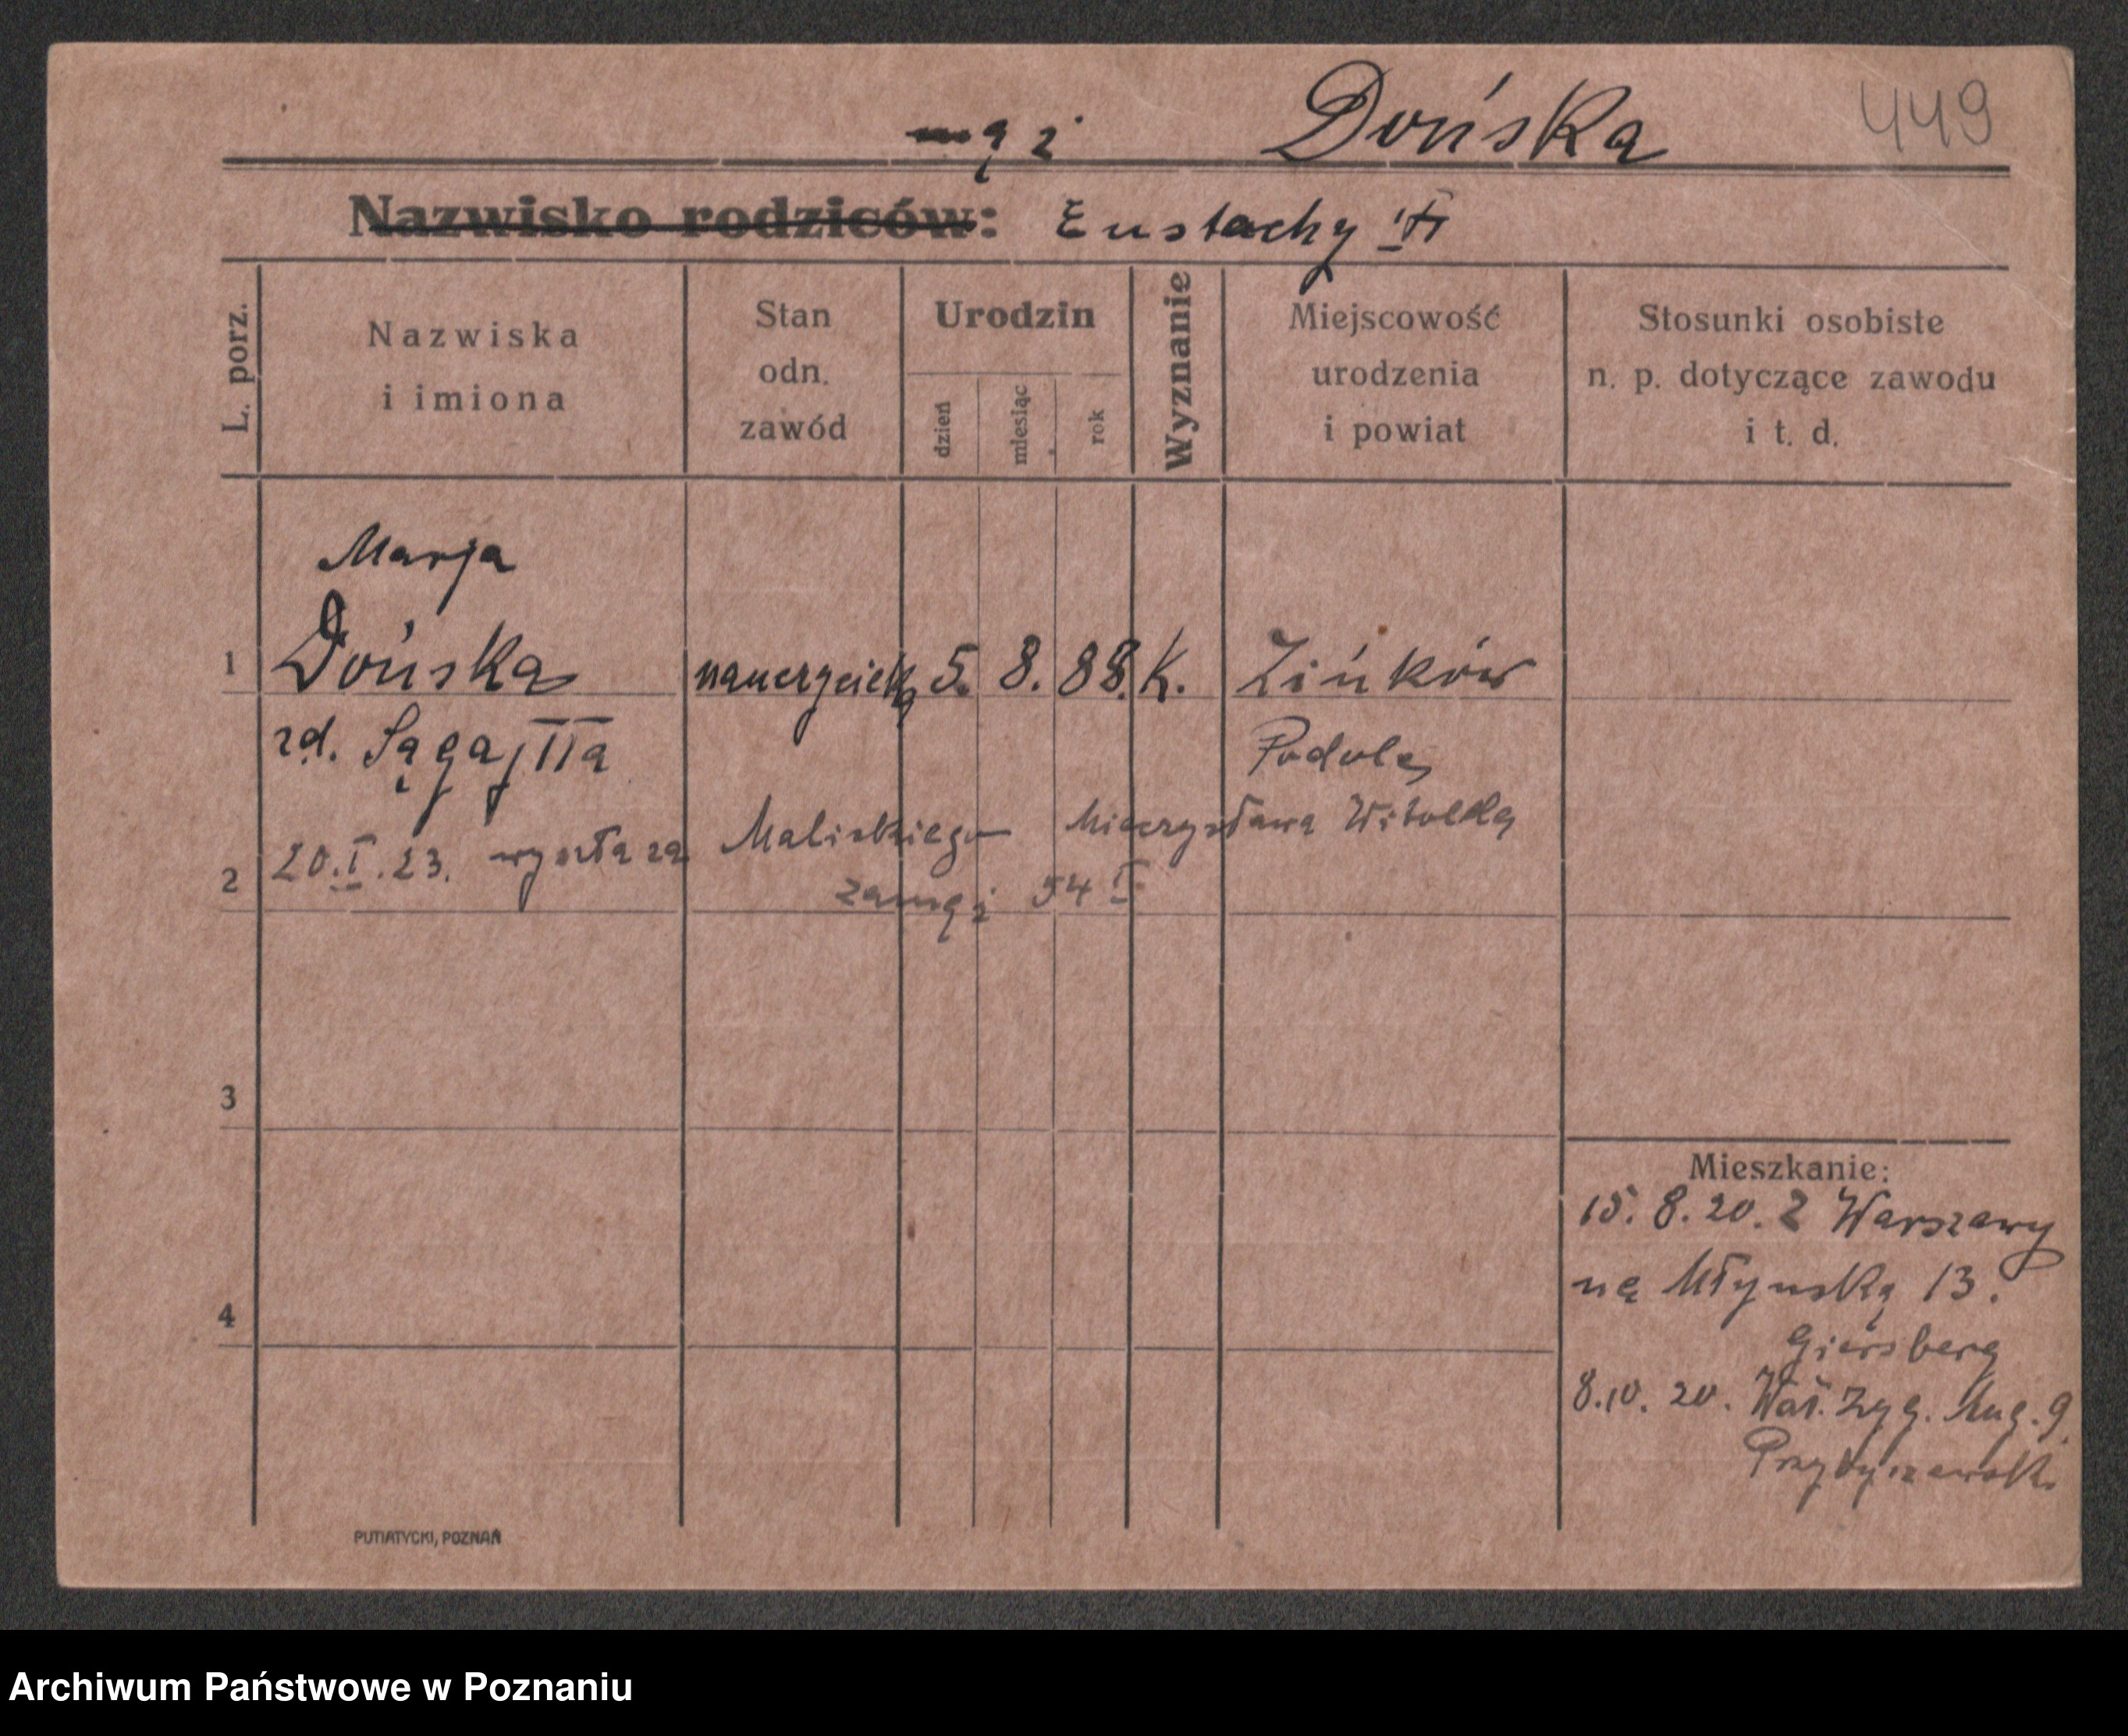 Dońska 449
mąż
Nazwisko rodziców: Eustachy
L. porz.
Nazwiska
i imiona
Stan
odn.
zawód
Urodzin
dzień
miesiąc
rok
Wyznanie
Miejscowość
urodzenia
i powiat
Stosunki osobiste
n. p. dotyczące zawodu
i t. d.
Marja
1 Dońska nauczycielka 5. 8. 88. K. Zińków
rd. Podole
2 20.I.23. wyszła za Maliskiego Mieczysława Witolda
zamąż 54 I
3
4
Mieszkanie:
15. 8. 20. Z Warszawy
na Młyńską 13.
Giersberg
8. 10. 20. Wał. Zyg. Aug. 9.
PUTIATYCKI, POZNAŃ
Archiwum Państwowe w Poznaniu